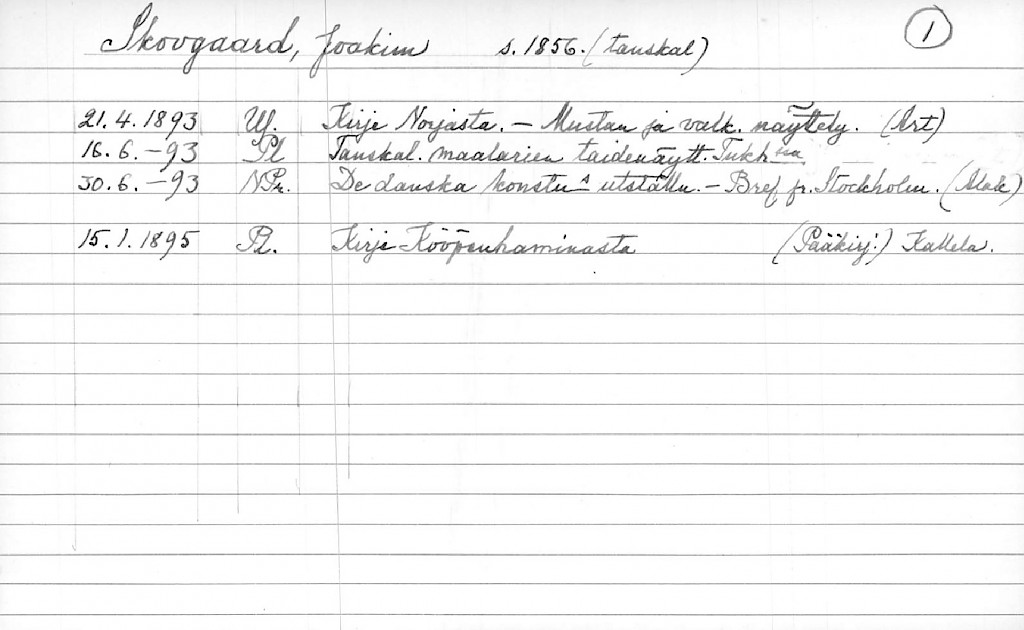 Skovgaard, Joakim s. 1856. (tanskal) 1
21.4.1893 Uf. Kirje Norjasta. – Mustan ja valk. näyttely. (Art)
16.6.–93 Pl Tanskal. maalarien taidenäytt. Tukh:ssa
30.6.–93 N Pr. De danska konstn:s utställn. – Bref fr. Stockholm.
15.1.1895 Pl. Kirje Kööpenhaminasta (Pääkirj:) Kallela.